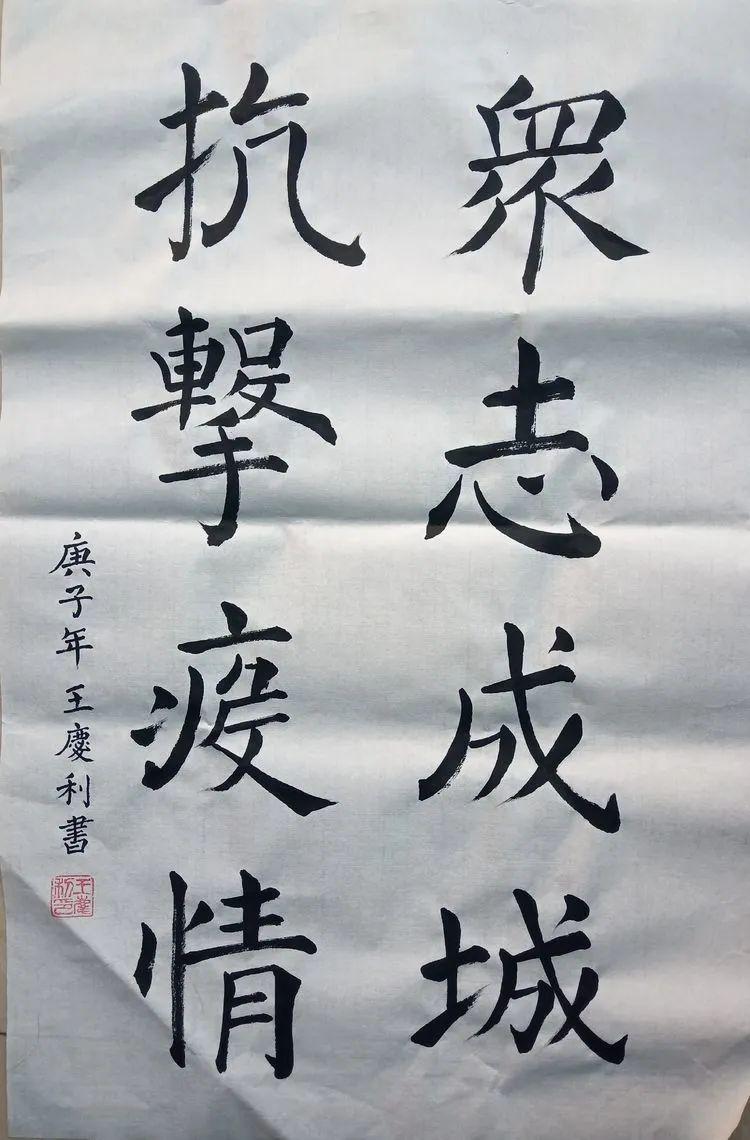 眾志成城
抗擊疫情
庚子年王慶利書
王慶利印